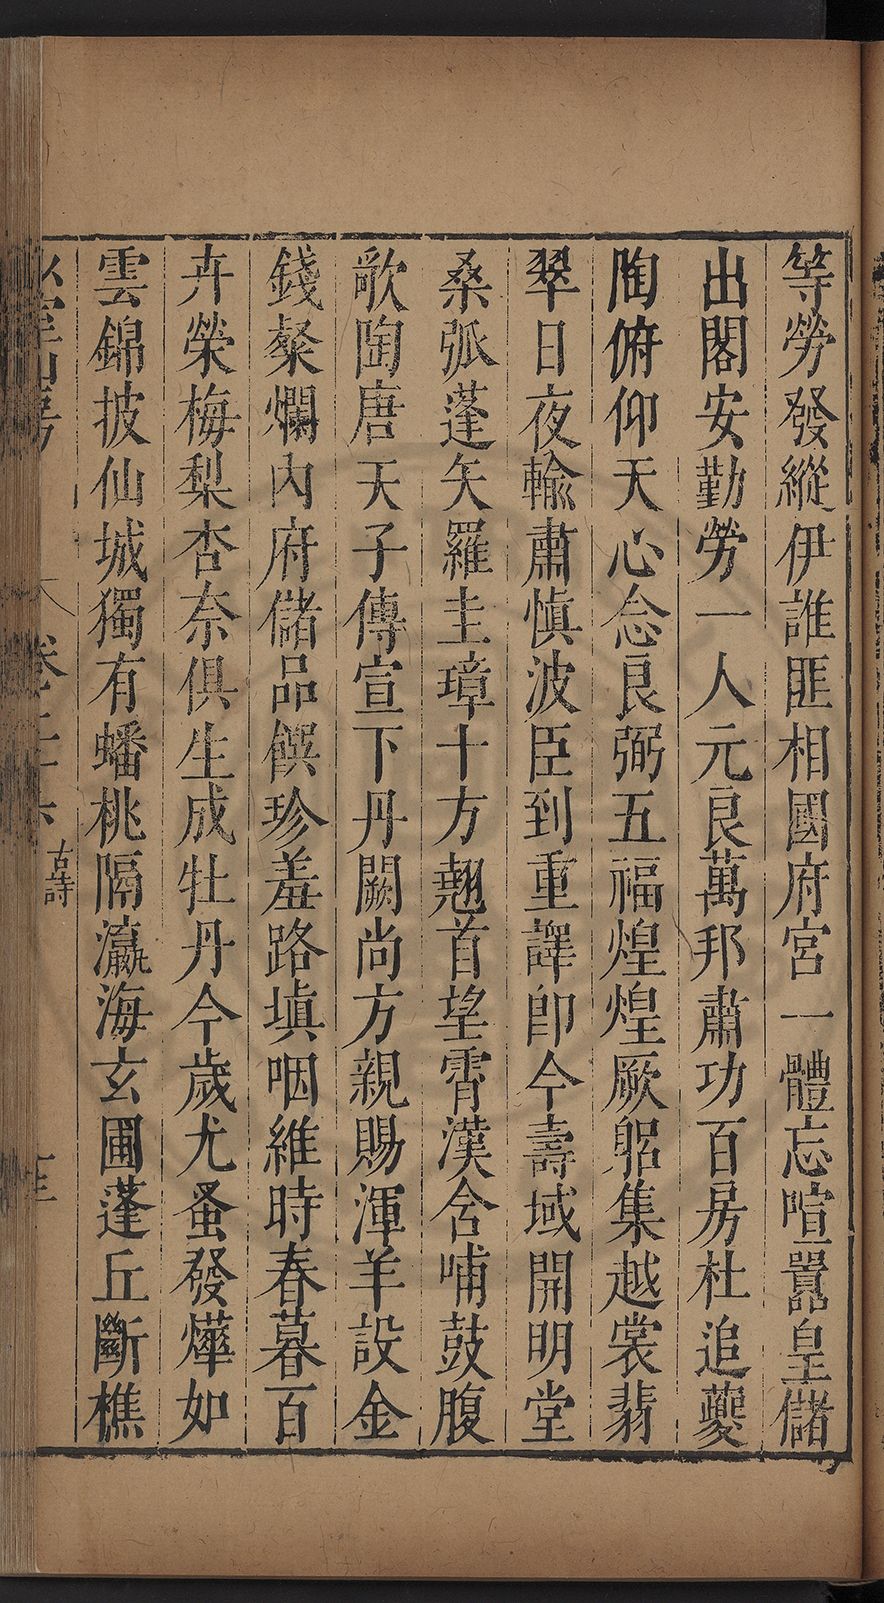 等勞發縱伊誰匪相國府宮一體忘喧囂皇儲
出閣安勤勞一人元良萬邦肅功百房杜追夔
陶俯仰天心念良弼五福煌煌厥躬集越裳翡
翠日夜輸肅慎波臣到重譯即今壽域開明堂
桑弧蓬矢羅圭璋十方翹首望霄漢含哺鼓腹
歌陶唐天子傳宣下丹闕尚方親賜渾羊設金
錢粲爛內府儲品饌珍羞路塡咽維時春暮百
卉榮梅梨杏奈俱生成牡丹今歲尤蚤發燁如
雲錦披仙城獨有蟠桃隔瀛海玄圃蓬丘斷樵
古詩